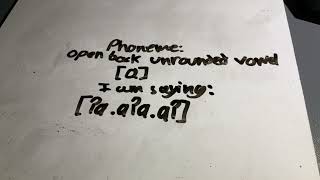 Phoneme:
open back unrounded vowel
[ɑ]
I am saying:
[ʔɑ.ɑʔɑ.ɑʔ]